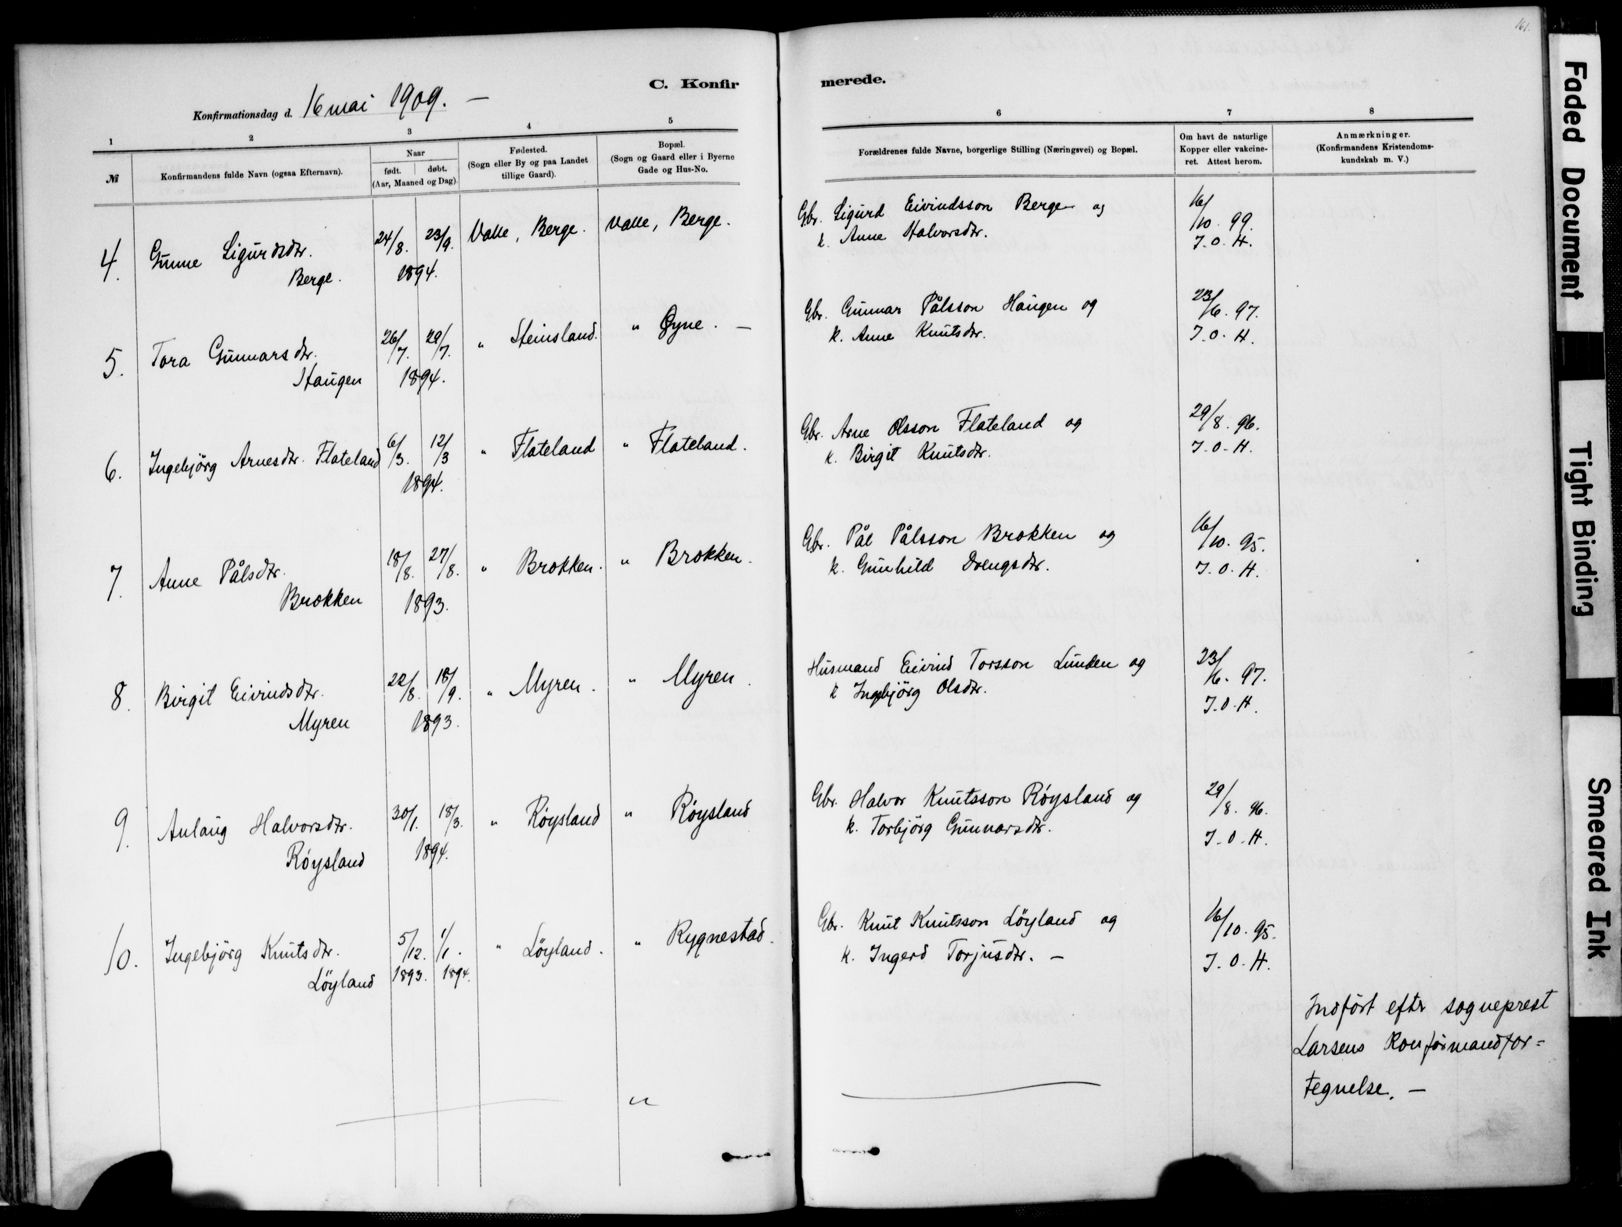 161.
C. Konfirmerede.
Konfirmationsdag d. 16 mai 1909. —
1 2 3 4 5 6 7 8
№
Konfirmandens fulde Navn (ogsaa Efternavn).
Naar
født. døbt.
(Aar, Maaned og Dag)
Fødested.
(Sogn eller By og paa Landet
tillige Gaard).
Bopæl.
(Sogn og Gaard eller i Byerne
Gade og Hus-No.
Forældrenes fulde Navne, borgerlige Stilling (Næringsvei) og Bopæl.
Om havt de naturlige
Kopper eller vakcine-
ret. Attest herom.
Anmærkninger.
(Konfirmandens Kristendoms-
kundskab m. V.)
4. Gunne Sigurdsdtr. 24/8. 23/9. Valle, Berge. Valle, Berge. Gbr. Sigurd Eivindsson Berge og 16/10. 99.
Berge. 1894. k. Anne Halvorsdtr. J. O. H.
5. Tora Gunnarsdtr. 26/7. 29/7. " Steinsland. " Øyne. — Gbr. Gunnar Pålsson Haugen og 23/6. 97.
Haugen 1894. k. Anne Knutsdtr. J. O. H.
6. Ingebjörg Arnesdtr. Flateland 6/3. 12/3 " Flateland " Flateland. Gbr. Arne Olsson Flateland og 29/8. 96.
1894. k. Birgit Knutsdtr. J. O. H.
7. Anne Pålsdtr. 18/8. 27/8. " Brokken. " Brokken. Gbr. Pål Pålsson Brokken og 16/10. 95.
Brokken 1893. k. Gunhild Drengsdtr. J. O. H.
8. Birgit Eivindsdtr. 22/8. 18/9. " Myren. " Myren. Husmand Eivind Torsson Lunden og 23/6. 97.
Myren 1893. k Ingebjörg Olsdtr. J. O. H.
9. Aulaug Halvorsdtr. 30/1. 18/3. " Röysland " Röysland Gbr. Halvor Knutsson Röysland og 29/8. 96.
Röysland 1894. k. Torbjörg Gunnarsdtr. J. O. H.
10. Ingebjörg Knutsdtr. 5/12. 1/1. " Löyland. " Rygnestad. Gbr. Knut Knutsson Löyland og 16/10. 95.
Löyland 1893. 1894. k. Ingerd Torjusdtr. — J. O. H.
Indført efter sogneprest
Larsens Konfirmandfor=
tegnelse. —
Faded Document
Tight Binding
Smeared Ink